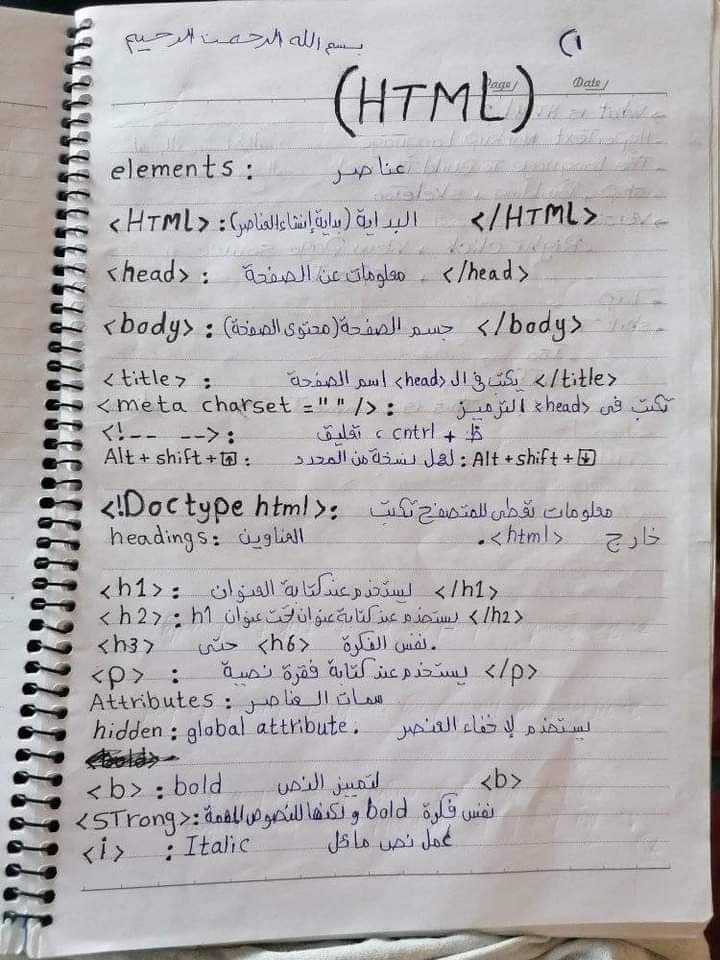 بسم الله الرحمن الرحيم
(1
Page/ Date/
(HTML)
elements : عناصر
<HTML> : البداية (بداية إنشاء العناصر) </HTML>
<head> : معلومات عن الصفحة </head>
<body> : جسم الصفحة (محتوى الصفحة) </body>
<title> : يكتب في ال <head> اسم الصفحة </title>
<meta charset =" " /> : تكتب في <head> الترميز
<!-- --> : تعليق ، cntrl + ظ
Alt + shift + ↑ : لعمل نسخة من المحدد : Alt + shift + ↓
<!Doctype html> : معلومات تعطى للمتصفح تكتب
خارج <html>.
headings : العناوين
<h1> : يستخدم عند كتابة العنوان </h1>
<h2> : يستخدم عند كتابة عنوان تحت عنوان h1 </h2>
<h3> حتى <h6> نفس الفكرة.
<p> : يستخدم عند كتابة فقرة نصية </p>
Attributes : سمات العناصر
hidden : global attribute. يستخدم لإخفاء العنصر
<b> : bold لتمييز النص <b>
<STrong> : نفس فكرة bold ولكنها للنصوص المهمة
<i> : Italic عمل نص مائل